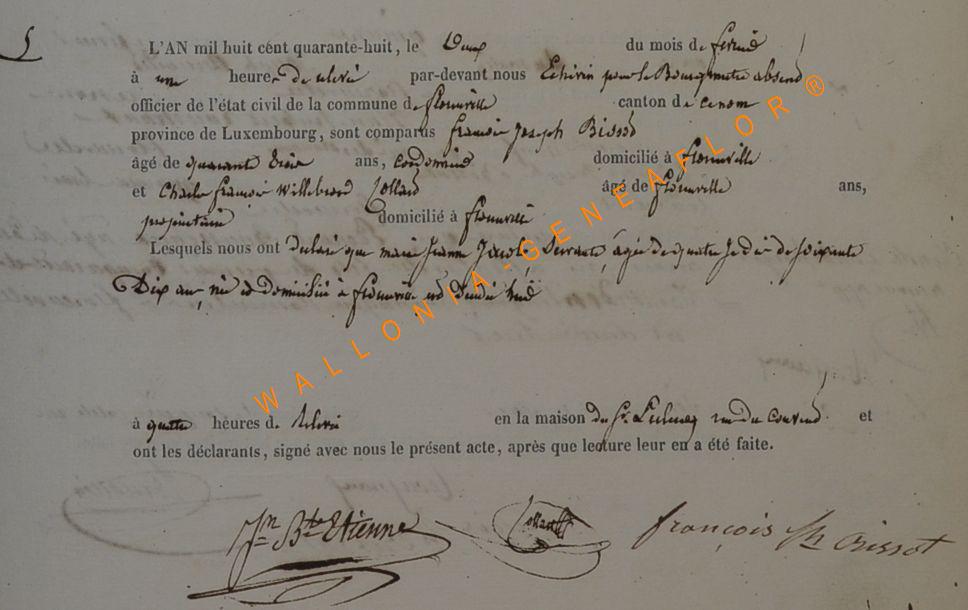 5
L'AN mil huit cent quarante-huit, le Deux du mois de fevrié
à une heure de relevé par-devant nous Echevin pour le Bourgmestre absend
officier de l'état civil de la commune de florenville canton de ce nom
province de Luxembourg, sont comparus francois Joseph Bissot
âgé de quarante trois ans, cordonnié domicilié à florenville
et Charle françois Willebrord Collard âgé de florenville ans,
propriétaire domicilié à florenville
Lesquels nous ont declaré que marie Jeanne Jacob Servante âgée de soixante
Dix ans, née et domicilié à florenville est décédé
à quatre heures de relevé en la maison du Sr. rue du couvend et
ont les déclarants, signé avec nous le présent acte, après que lecture leur en a été faite.
Jn Bte Etienne Collard françois Jh Bissot
WALLONIA-GENEAFLOR®